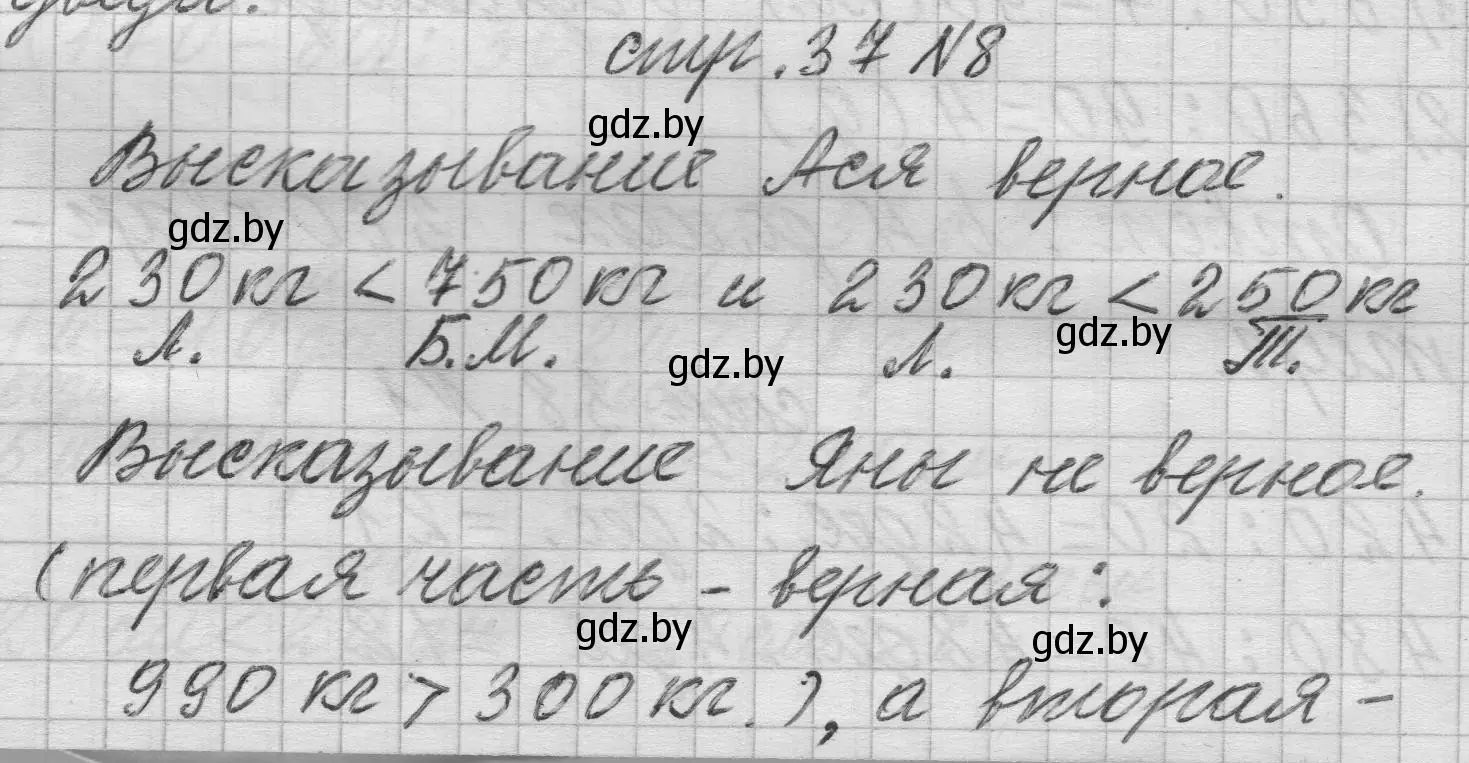 стр. 37 N8
gdz.by
Высказывание Ася верное.
gdz.by
230 кг < 750 кг и 230 кг < 250 кг
gdz.by
Л. Б.М. Л. Т.
gdz.by
Высказывание Яны не верное.
(первая часть - верная:
gdz.by
gdz.by
990 кг > 300 кг.), а вторая -